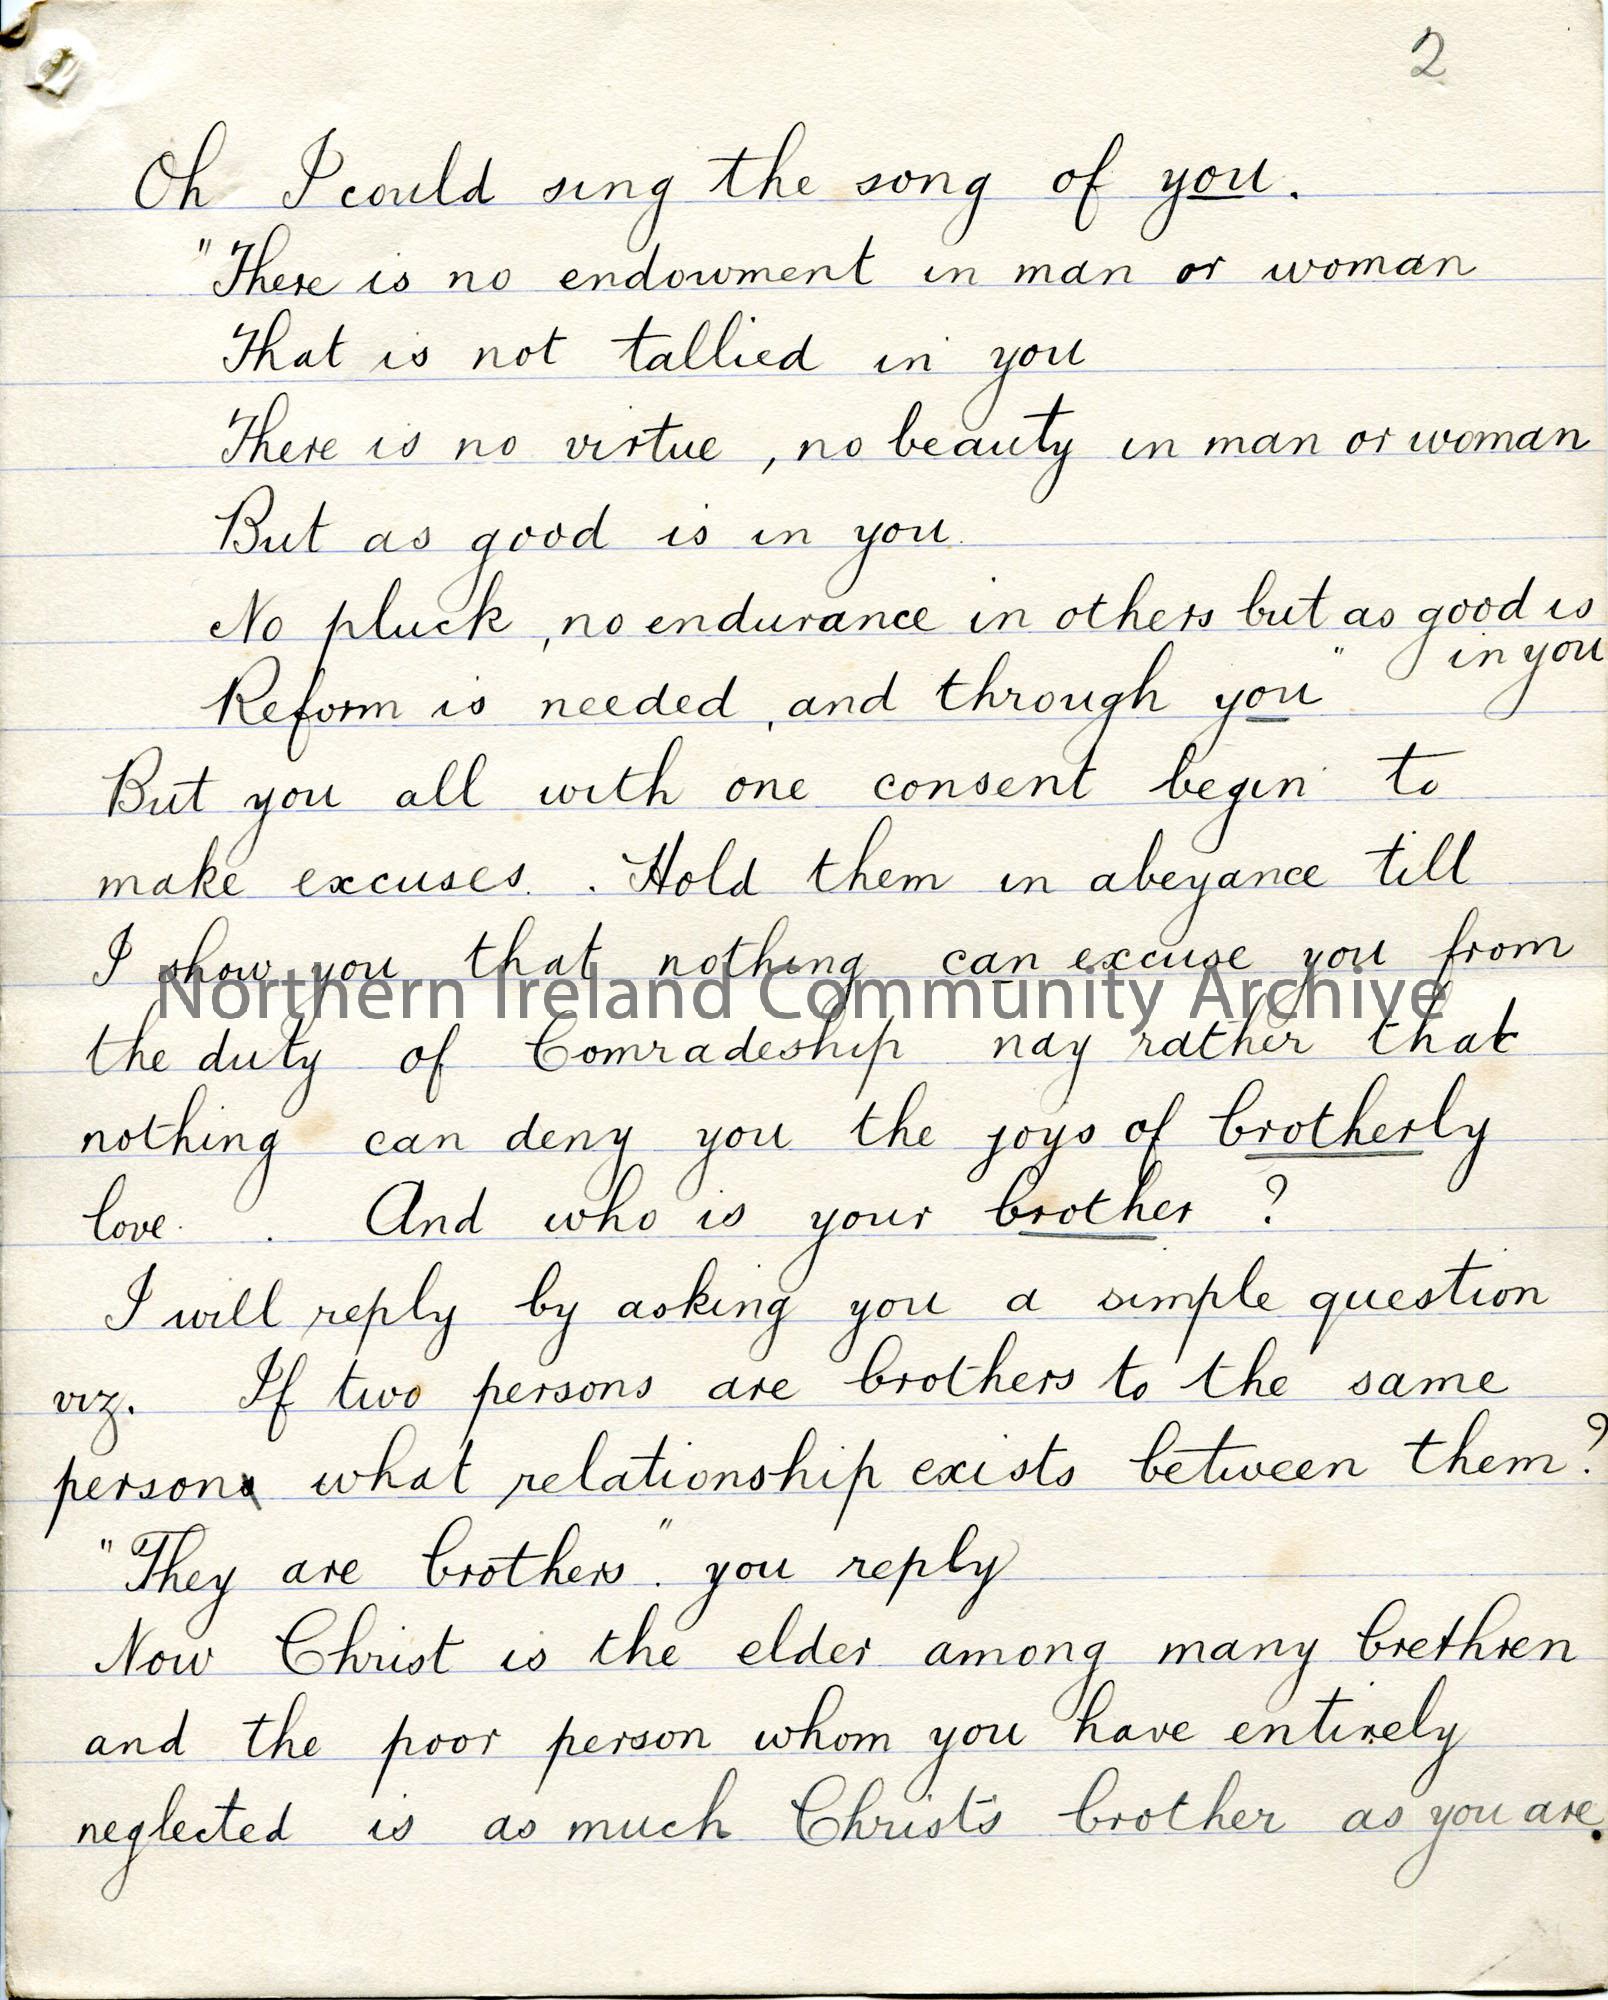 2
Oh I could sing the song of you.
"There is no endowment in man or woman
That is not tallied in you
There is no virtue, no beauty in man or woman
But as good is in you.
No pluck, no endurance in others but as good is
in you
Reform is needed, and through you"
But you all with one consent begin to
make excuses. . Hold them in abeyance till
I show you that nothing can excuse you from
Northern Ireland Community Archive
the duty of Comradeship nay rather that
nothing can deny you the joys of brotherly
love. . And who is your brother ?
I will reply by asking you a simple question
viz. If two persons are brothers to the same
person what relationship exists between them?
"They are brothers". you reply
Now Christ is the elder among many brethren
and the poor person whom you have entirely
neglected is as much Christ's brother as you are.